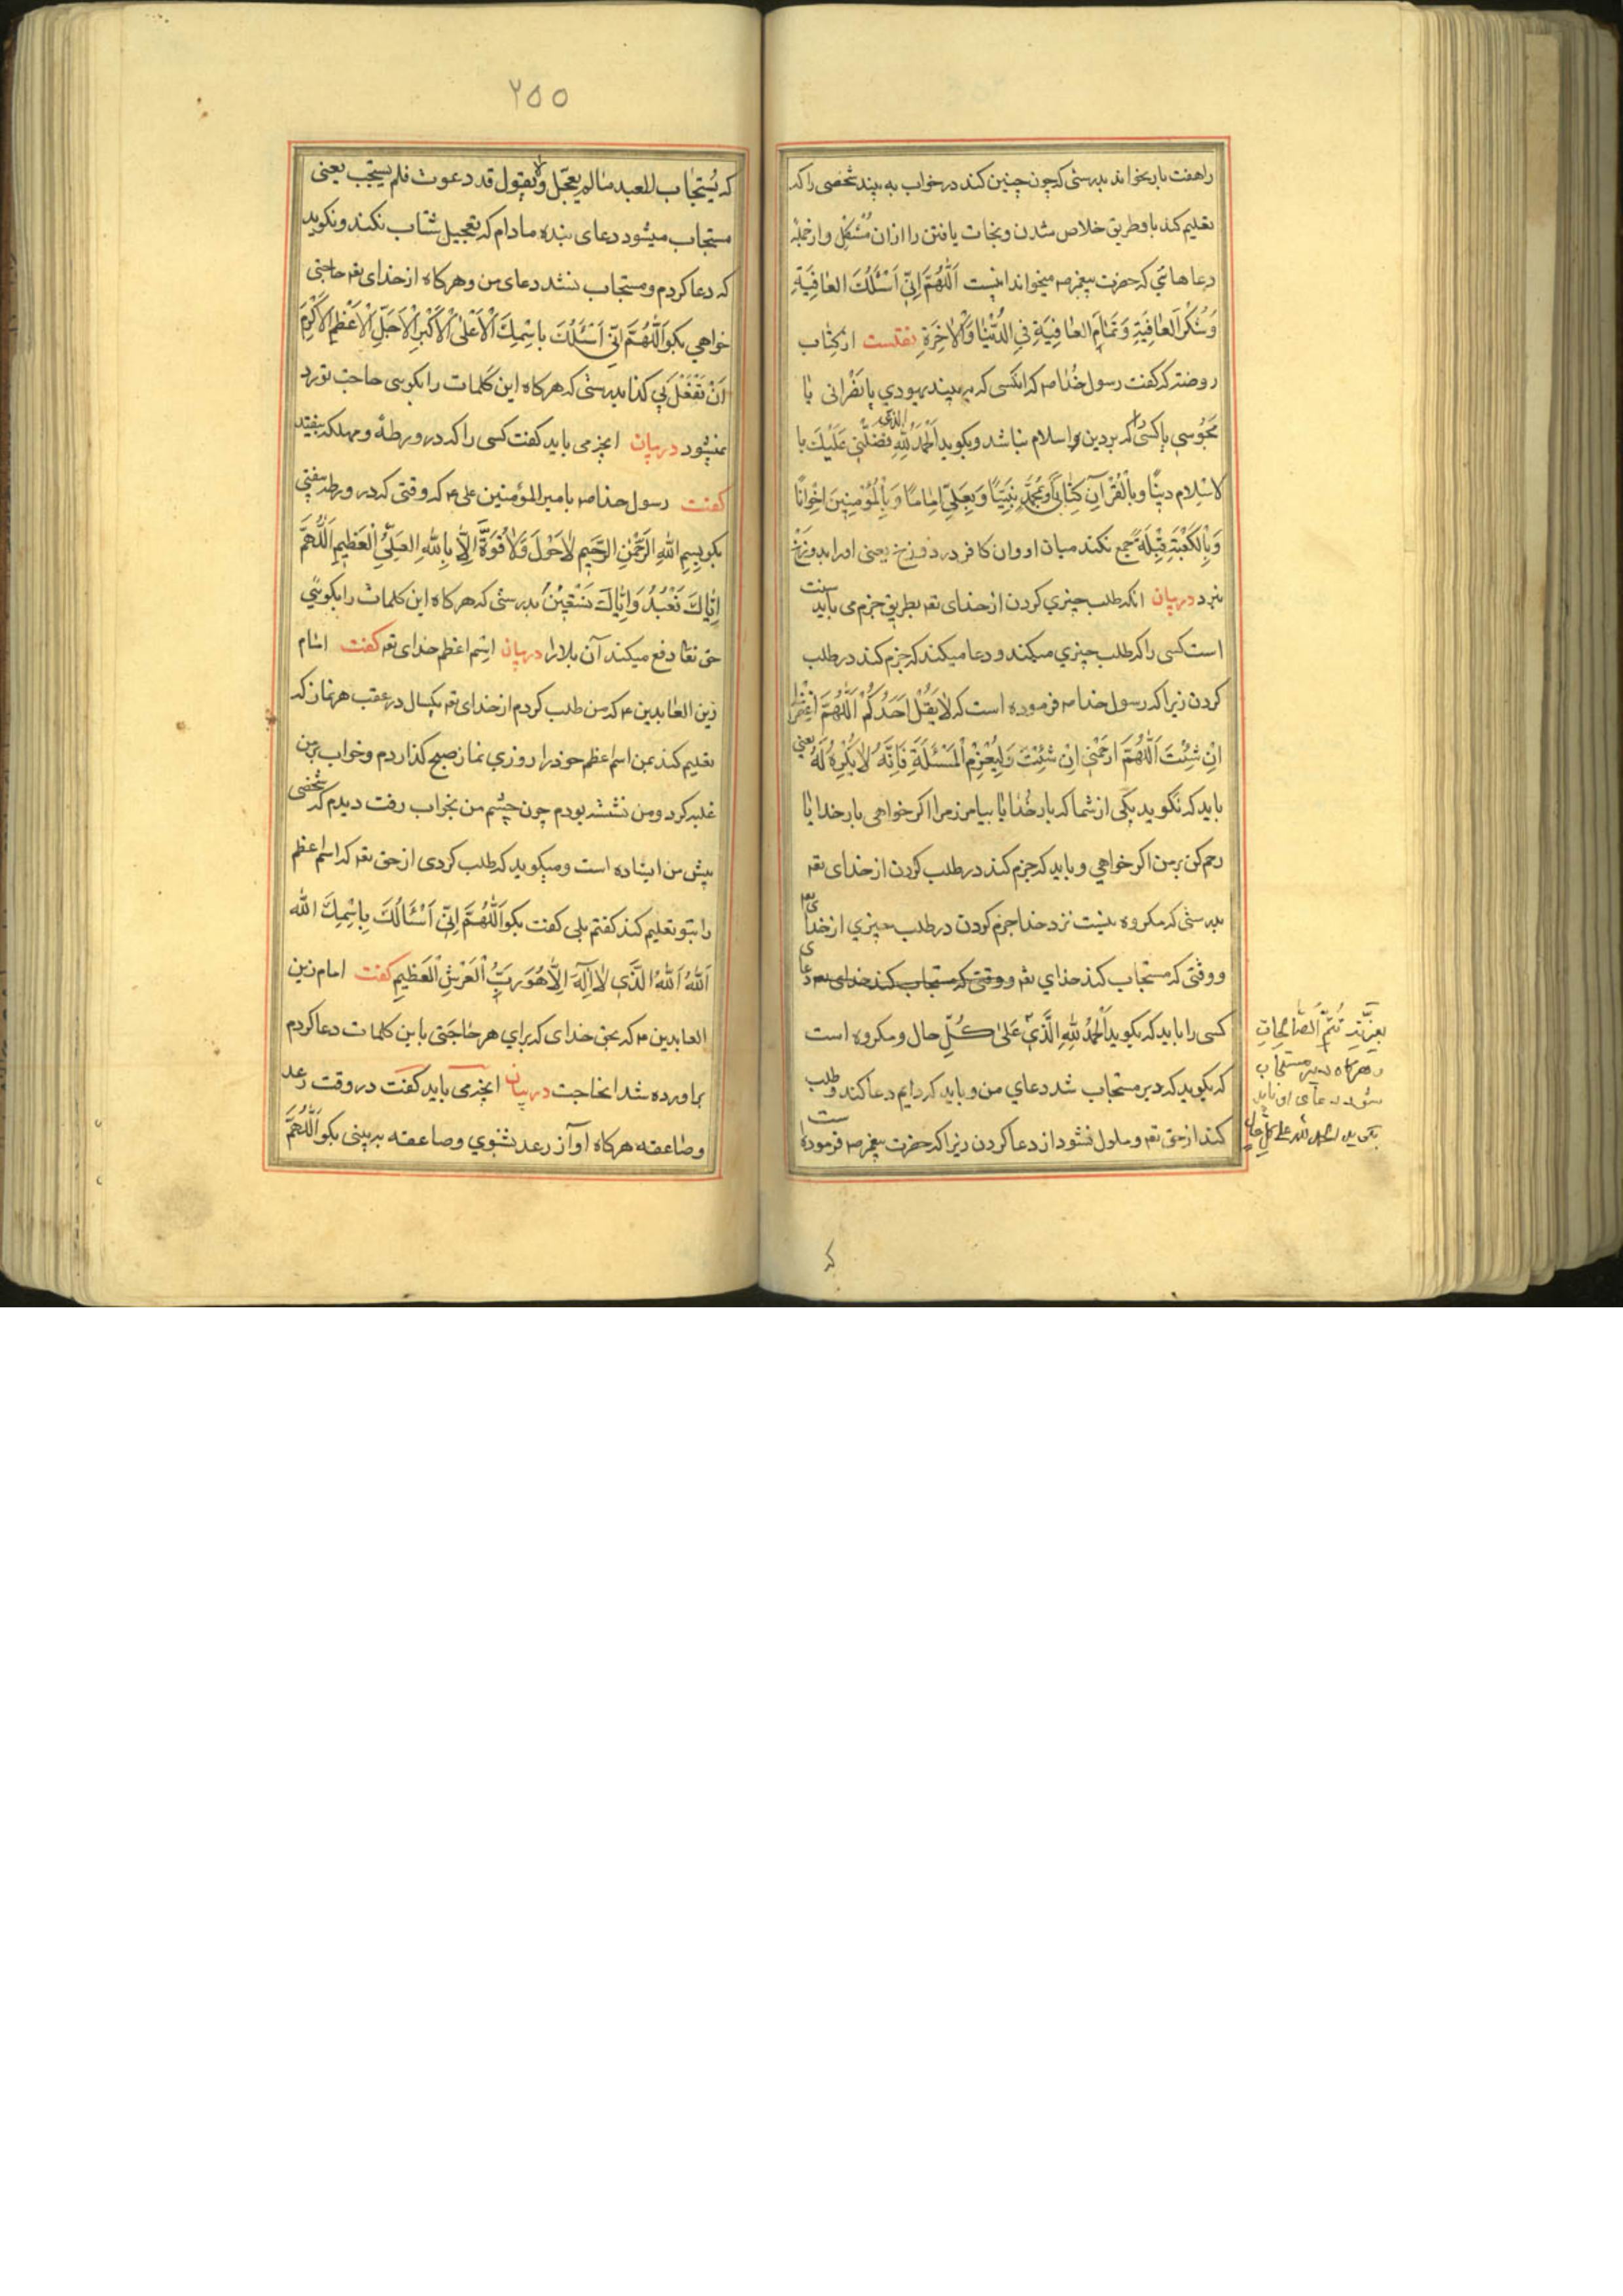 راهفت بار بخواند بدرستی که چون چنین کند در خواب به بیند شخصی را که
تعلیم کند باو طریق خلاص شدن و نجات یافتن را ازان مشکل و از جمله
دعاهائی که حضرت پیغمبر صه میخواند اینست اَللّٰهُمَّ اِنّی اَسْئَلُكَ العافِیَةِ
وَشُکْرَ العافِیَةِ وَتَمامَ العافِیَةِ فِی الدُّنْیا وَالْاٰخِرَةِ نقلست از کتاب
روضه که گفت رسول خدا صه که انکسی که به بیند یهودی یا نصرانی یا
مجوسی یا کسی را که بر دین اسلام نباشد و بکوید اَلْحَمْدُ لِلّٰهِ الذی فَضَّلَنی عَلَیْكَ بِا
لاسْلامِ دینًا وَبِالْقُرْآنِ کِتابًا وَبِمُحَمَّدٍ نَبِیًّا وَبِعَلِیٍّ اِمامًا وَبِالْمُؤْمِنینَ اِخْوانًا
وَبِالْکَعْبَةِ قِبْلَةً جمع نکند میان او وان کافر در دوزخ یعنی او را بدوزخ
نبرد دربیان انکه طلب چیزی کردن از خدای تعه بطریق جزم می باید سنت
است کسی را که طلب چیزی میکند و دعا میکند که جزم کند در طلب
کردن زیرا که رسول خدا صه فرموده است که لا یَقُلْ اَحَدُکُمْ اَللّٰهُمَّ اغْفِرْلی
اِنْ شِئْتَ اَللّٰهُمَّ ارْحَمْنی اِنْ شِئْتَ وَلْیُعْزِمِ الْمَسْئَلَةَ فَاِنَّهُ لا یُکْرِهُ لَهُ یعنی
باید که نکوید یکی از شما که بار خدایا بیامرز مرا اکر خواهی بار خدایا
رحم کن بر من اکر خواهی و باید که جزم کند در طلب کردن از خدای تعه
بدرستی که مکروه نیست نزد خدا جزم کردن در طلب چیزی از خدای تعه
و وقتی که مستجاب کند خدای تعه و وقتی که مستجاب کند خدای تعه دعای
کسی را باید که بکوید اَلْحَمْدُ لِلّٰهِ الَّذی عَلیٰ کُلِّ حال و مکروه است
که بکوید که دیر مستجاب شد دعای من و باید که دایم دعا کند و طلب
کند از حق تعه و ملول نشود از دعا کردن زیرا که حضرت پیغمبر صه فرموده است
بعِزَّتِهِ تُتِمُّ الصّالِحاتِ
و هرکاه دیر مستجاب
شود دعای او باید
بکوید الحمد لله علی کل حال
که
۲۵۵
که یُستجاب للعبد ما لم یعجّل ولا یقول قد دعوت فلم یستجب یعنی
مستجاب میشود دعای بنده مادام که تعجیل شتاب نکند و نکوید
که دعا کردم و مستجاب نشد دعای من و هرکاه از خدای تعه حاجتی
خواهی بکو اَللّٰهُمَّ اِنّی اَسْئَلُكَ بِاسْمِكَ الْاَعْلَی الْاَکْبَرِ الْاَجَلِّ الْاَعْظَمِ الْاَکْرَمِ
اَنْ تَفْعَلَ بی کذا بدرستی که هرکاه این کلمات را بکویی حاجت تو رد
نمیشود دربیان انچه می باید کفت کسی را که در ورطهٔ و مهلکه بیفتد
کفت رسول خدا صه بامیرالمؤمنین علی عه که وقتی که در ورطه بیفتی
بکو بِسْمِ اللّٰهِ الرَّحْمٰنِ الرَّحیمِ لاحَوْلَ وَلاقُوَّةَ اِلّا بِاللّٰهِ العَلِیِّ الْعَظیمِ اَللّٰهُمَّ
اِیّاكَ نَعْبُدُ وَاِیّاكَ نَسْتَعینُ بدرستی که هرکاه این کلمات را بکویی
حق تعا دفع میکند آن بلا را دربیان اسم اعظم خدای تعه کفت امام
زین العابدین عه که من طلب کردم از خدای تعه یکسال در عقب هر نماز که
تعلیم کند بمن اسم اعظم خود را روزی نماز صبح کذاردم و خواب بر من
غلبه کرد و من نشسته بودم چون چشم من بخواب رفت دیدم که شخصی
پیش من ایستاده است و میکوید که طلب کردی از حق تعه که اسم اعظم
را بتو تعلیم کند کفتم بلی کفت بکو اَللّٰهُمَّ اِنّی اَسْئَالُكَ بِاسْمِكَ اللّٰه
اَللّٰهُ اَللّٰهُ الَّذی لا اِلٰهَ اِلّا هُوَ رَبُّ الْعَرْشِ الْعَظیمِ کفت امام زین
العابدین عه که بحق خدای که برای هر حاجتی باین کلمات دعا کردم
براورده شد انحاجت دربیان انچه می باید کفت در وقت رعد
و صاعقه هرکاه اواز رعد بشنوی و صاعقه به بینی بکو اَللّٰهُمَّ